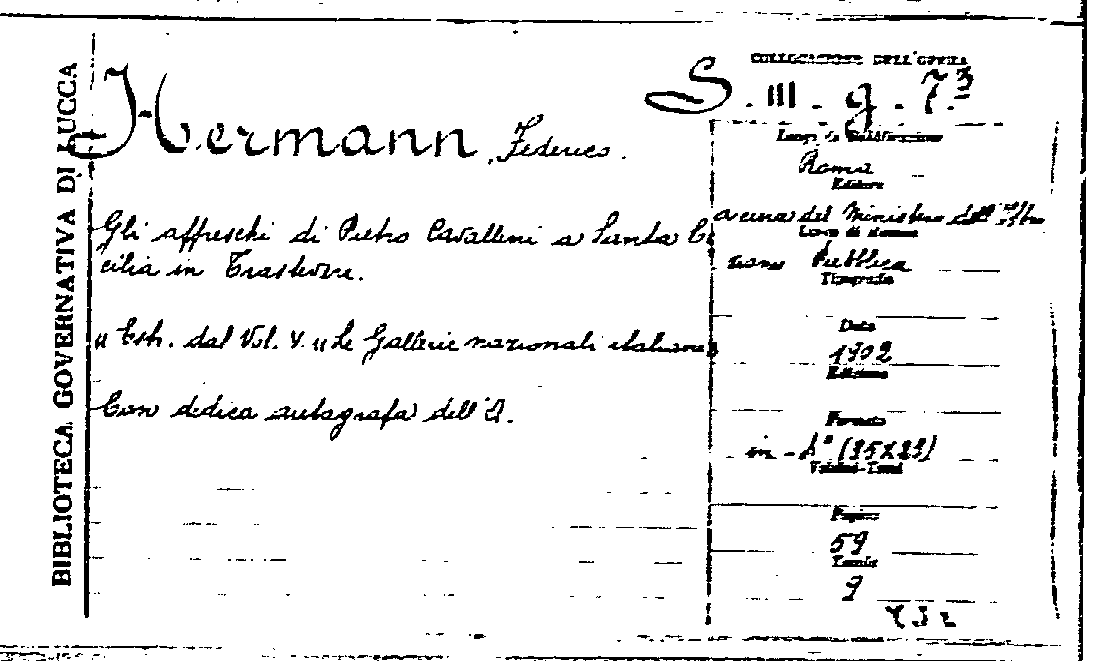 BIBLIOTECA GOVERNATIVA DI LUCCA
Hermann, Federico.
Gli affreschi di Pietro Cavallini a Santa Ce
cilia in Trastevere.
"Estr. dal Vol. V. "Le Gallerie nazionali italiane"
Con dedica autografa dell'A.
COLLOCAZIONE DELL'OPERA
S. III. g. 7.3
Luogo di Pubblicazione
Roma
Editore
a cura del Ministero dell'Istru
Luogo di stampa
zione Pubblica
Tipografia
Data
1902
Edizione
Formato
in-4° (35X23)
Volumi-Tomi
Pagine
59
Tavole
9